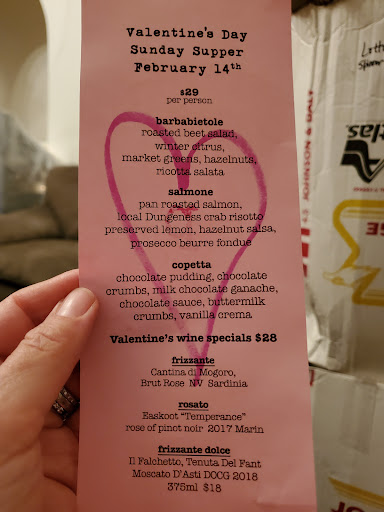 Valentine's Day
Sunday Supper
February 14th
$29
per person
barbabietole
roasted beet salad,
winter citrus,
market greens, hazelnuts,
ricotta salata
salmone
pan roasted salmon,
local Dungeness crab risotto
preserved lemon, hazelnut salsa,
prosecco beurre fondue
copetta
chocolate pudding, chocolate
crumbs, milk chocolate ganache,
chocolate sauce, buttermilk
crumbs, vanilla crema
Valentine's wine specials $28
frizzante
Cantina di Mogoro,
Brut Rose NV Sardinia
rosato
Easkoot "Temperance"
rose of pinot noir 2017 Marin
frizzante dolce
Il Falchetto, Tenuta Del Fant
Moscato D'Asti DOCG 2018
375ml $18